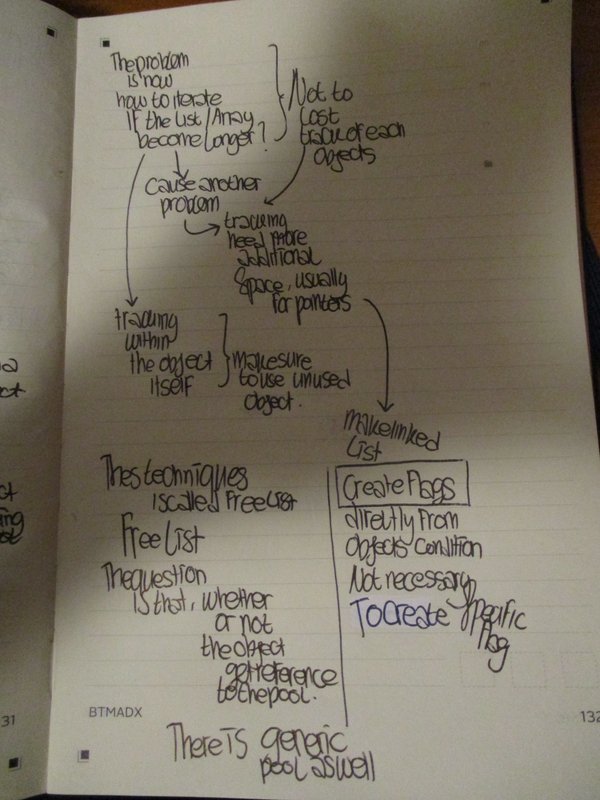 The problem
is now
how to iterate
If the List/Array
become Longer?
Not to
Lost
track of each
objects
cause another
problem
tracking
need more
additional
space, usually
for pointers
tracking
within
the object
itself
make sure
to use unused
object.
make linked
List
Thes techniques
is called Free List
Free List
The question
Is that, whether
or not
the object
get reference
to the pool.
Create Flags
directly From
objects condition
Not necessary
To Create specific
flag
There is generic
pool as well
31
BTMADX
132